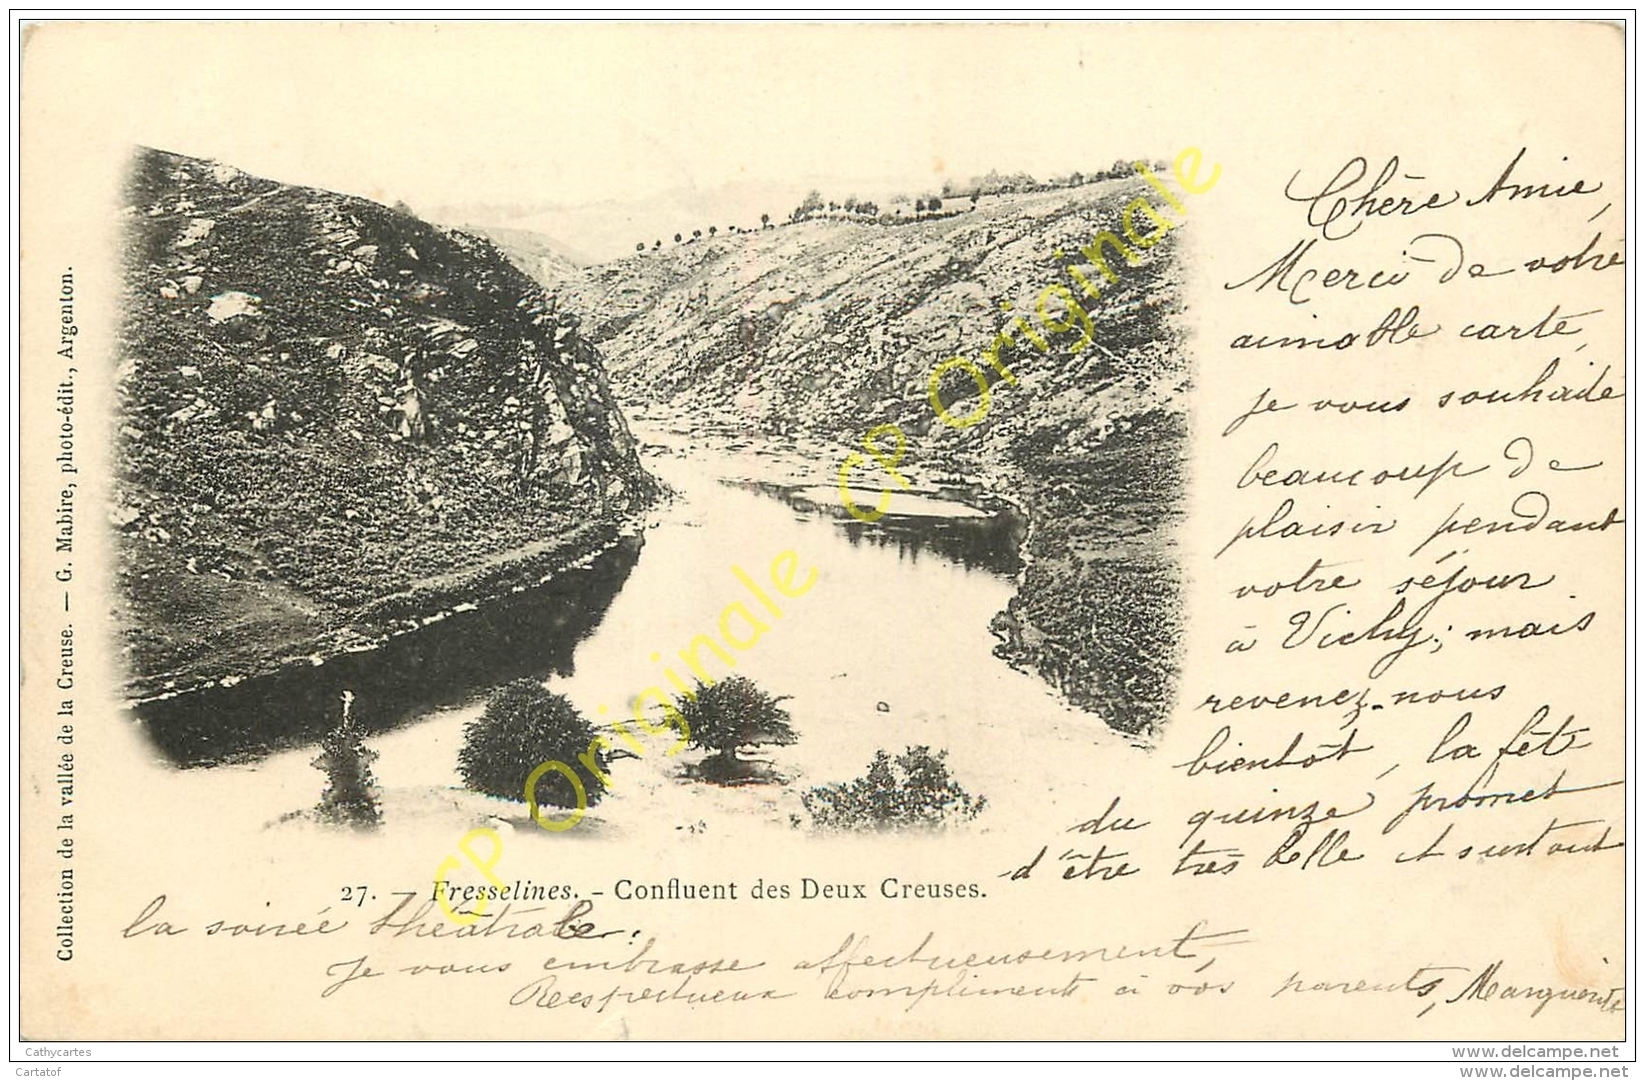 Chère Amie,
Merci de votre
aimable carte,
je vous souhaite
beaucoup de
plaisir pendant
votre séjour
à Vichy; mais
revenez-nous
bientôt, la fête
du quinze promet
d'être très belle et surtout
la soirée théâtrale.
Je vous embrasse affectueusement,
Respectueux compliments à vos parents, Marguerite
27. — Fresselines. - Confluent des Deux Creuses.
Collection de la vallée de la Creuse. — G. Mabire, photo-édit., Argenton.
CP Originale CP Originale
Cathycartes
Cartatof
www.delcampe.com
www.delcampe.com